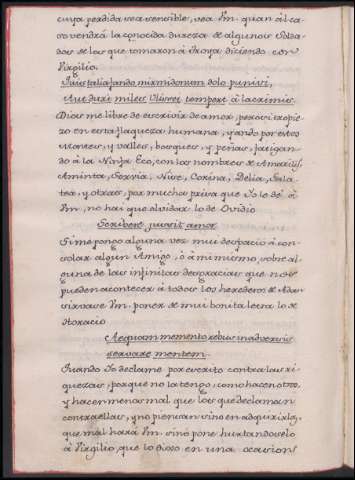 cuya perdida sea sensible, vea Vm. quan al ca-
so vendrá la conocida dureza de algunos Solda-
dos de los que tomaron á Troya diciendo con
Virgilio.
Quis talia fando mirmidonum dolo
Aut duri miles Ulissei temperet à lacrimis.
Dios me libre de escrivir de amor, pero si tropie-
zo en esta flaqueza humana, y ando por estos
Montes, y valles, bosques, y peñas, fatigan-
do á la Ninfa Eco, con los nombres de Amarilis,
Aminta, Servia, Nise, Corina, Delia, Gala-
tea, y otras, por mucha prisa que Yo le dé à
Vm, no hai que olvidar lo de Ovidio
Scribere jussit amor
Si me pongo alguna vez mui despacio á con-
solar algun Amigo, ó á mi mismo, sobre al-
guna de las infinitas desgracias que nos
pueden acontecer á todos los herederos de Adan
sirvase Vm. poner de mui bonita letra lo de
Horacio
Aequam memento rebus in adversis
servare mentem.
Quando Yo declame por escrito contra las ri-
quezas, porque no la tengo, como hacen otros,
y hacen menos mal que los que declaman
contra ellas, y no piensan sino en adquirirlas,
que mal hará Vm. sino pone hurtandoselo
à Virgilio, que lo dixo en una ocasion